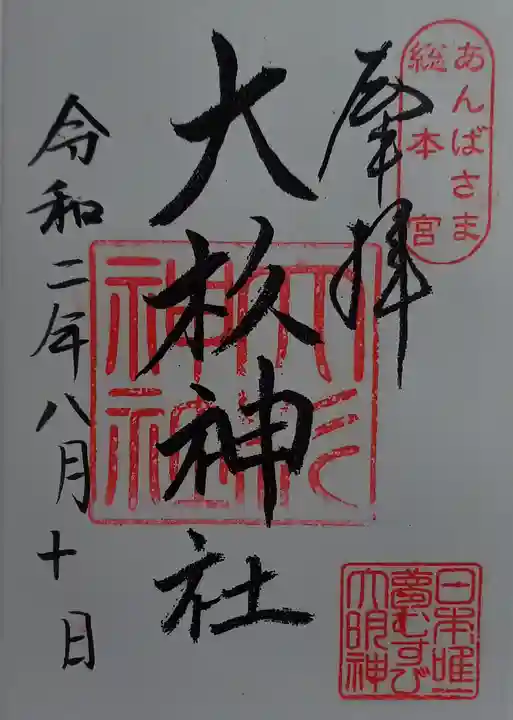 あんばさま
総本宮
奉拝
大杉神社
大杉
神社
日本唯一
夢むすび
大明神
令和二年八月十日